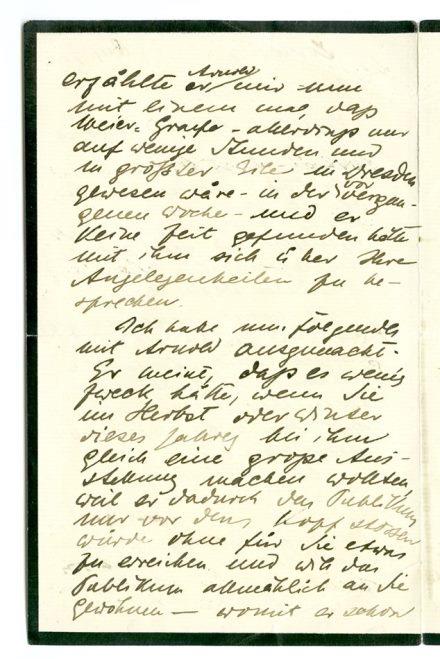 Arnold
erzählte er mir nun
mit einem mal, daß
Meier-Graefe - allerdings nur
auf wenige Stunden und
in größter Eile in Dresden
gewesen wäre - in der vor
vergan-
genen Woche - und er
keine Zeit gefunden hätte
mit ihm sich über Ihre
Angelegenheiten zu be-
sprechen.
Ich habe nun folgendes
mit Arnold ausgemacht.
Er meint, daß es wenig
Zweck hätte, wenn Sie
im Herbst oder Winter
dieses Jahres bei ihm
gleich eine große Aus-
stellung machen wollten,
weil er dadurch das Publikum
nur vor den Kopf stossen
würde ohne für Sie etwas
zu erreichen und will das
Publikum allmählich an Sie
gewöhnen - womit er schon